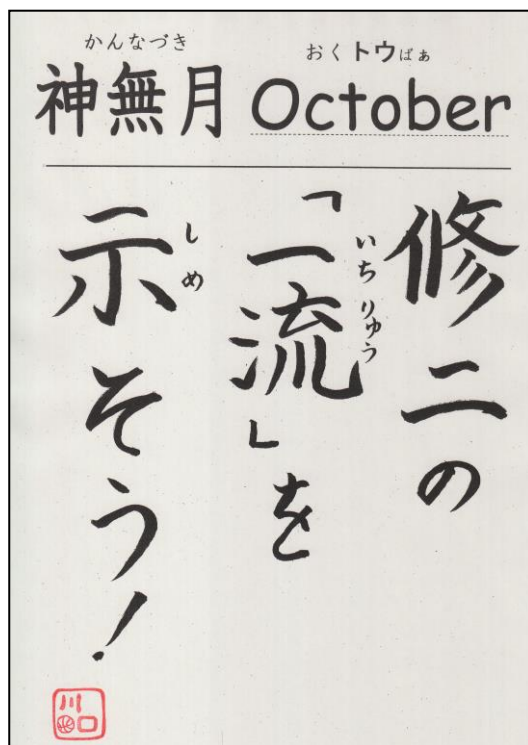 かんなづき
神無月
おくトウばぁ
October
修二の
いちりゅう
「一流」を
しめ
示そう！
川口